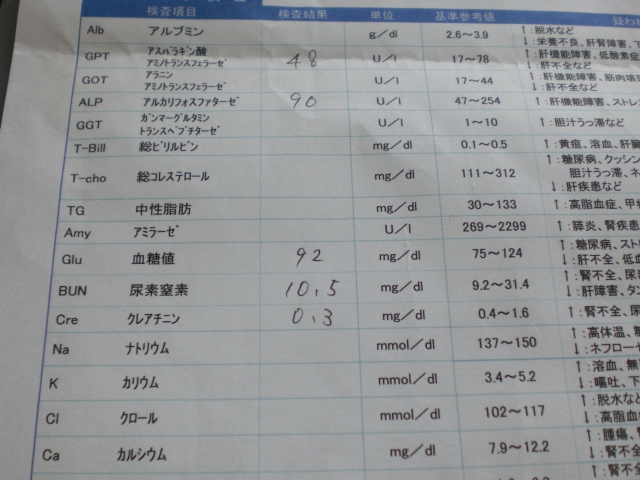 検査項目 検査結果 単位 基準参考値
Alb アルブミン g/dl 2.6～3.9 ↑:脱水など
↓:栄養不良、肝腎障害、
GPT アスパラギン酸 アミノトランスフェラーゼ 48 U/l 17～78 ↑:肝機能障害、低酸素症
↓:肝不全など
GOT アラニン アミノトランスフェラーゼ U/l 17～44 ↑:肝機能障害、筋肉壊
↓:肝不全など
ALP アルカリフォスファターゼ 90 U/l 47～254 ↑:肝機能障害、ストレ
GGT ガンマーグルタミン トランスペプチターゼ U/l 1～10 ↑:胆汁うっ滞など
T-Bill 総ビリルビン mg/dl 0.1～0.5 ↑:黄疸、溶血、肝臓
T-cho 総コレステロール mg/dl 111～312 ↑:糖尿病、クッシン
胆汁うっ滞、ネ
↓:肝疾患など
TG 中性脂肪 mg/dl 30～133 ↑:高脂血症、甲
Amy アミラーゼ U/l 269～2299 ↑:膵炎、腎疾患
Glu 血糖値 92 mg/dl 75～124 ↑:糖尿病、スト
↓:肝不全、低
BUN 尿素窒素 10.5 mg/dl 9.2～31.4 ↑:腎不全、尿
↓:肝障害、タン
Cre クレアチニン 0.3 mg/dl 0.4～1.6 ↑:腎不全、尿
Na ナトリウム mmol/dl 137～150 ↑:高体温、
↓:ネフローゼ
K カリウム mmol/dl 3.4～5.2 ↑:溶血、無
↓:嘔吐、下
Cl クロール mmol/dl 102～117 ↑:脱水など
↓:高脂血
Ca カルシウム mg/dl 7.9～12.2 ↑:腫瘍、
↓:腎不全